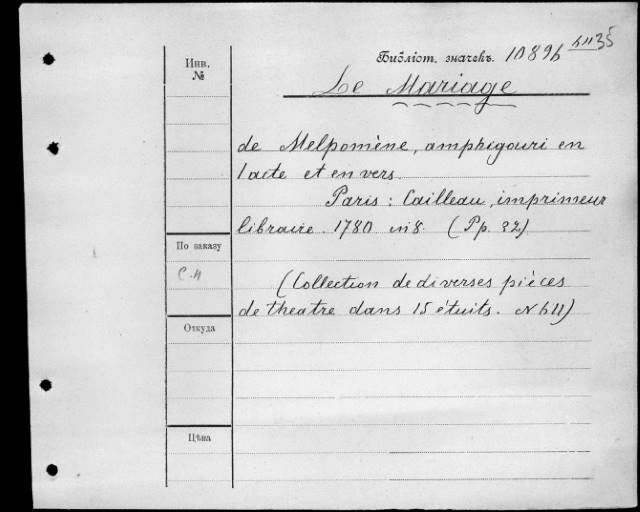 Инв.
№
Библіот. значекъ. 1089b 611 35
Le Mariage
de Melpomène, amphigouri en
1 acte et en vers.
Paris: Cailleau, imprimeur
libraire. 1780 in 8. (Pp. 32)
По заказу
C. 4
(Collection de diverses pièces
de theatre dans 15 étuits. N 611)
Откуда
Цѣна